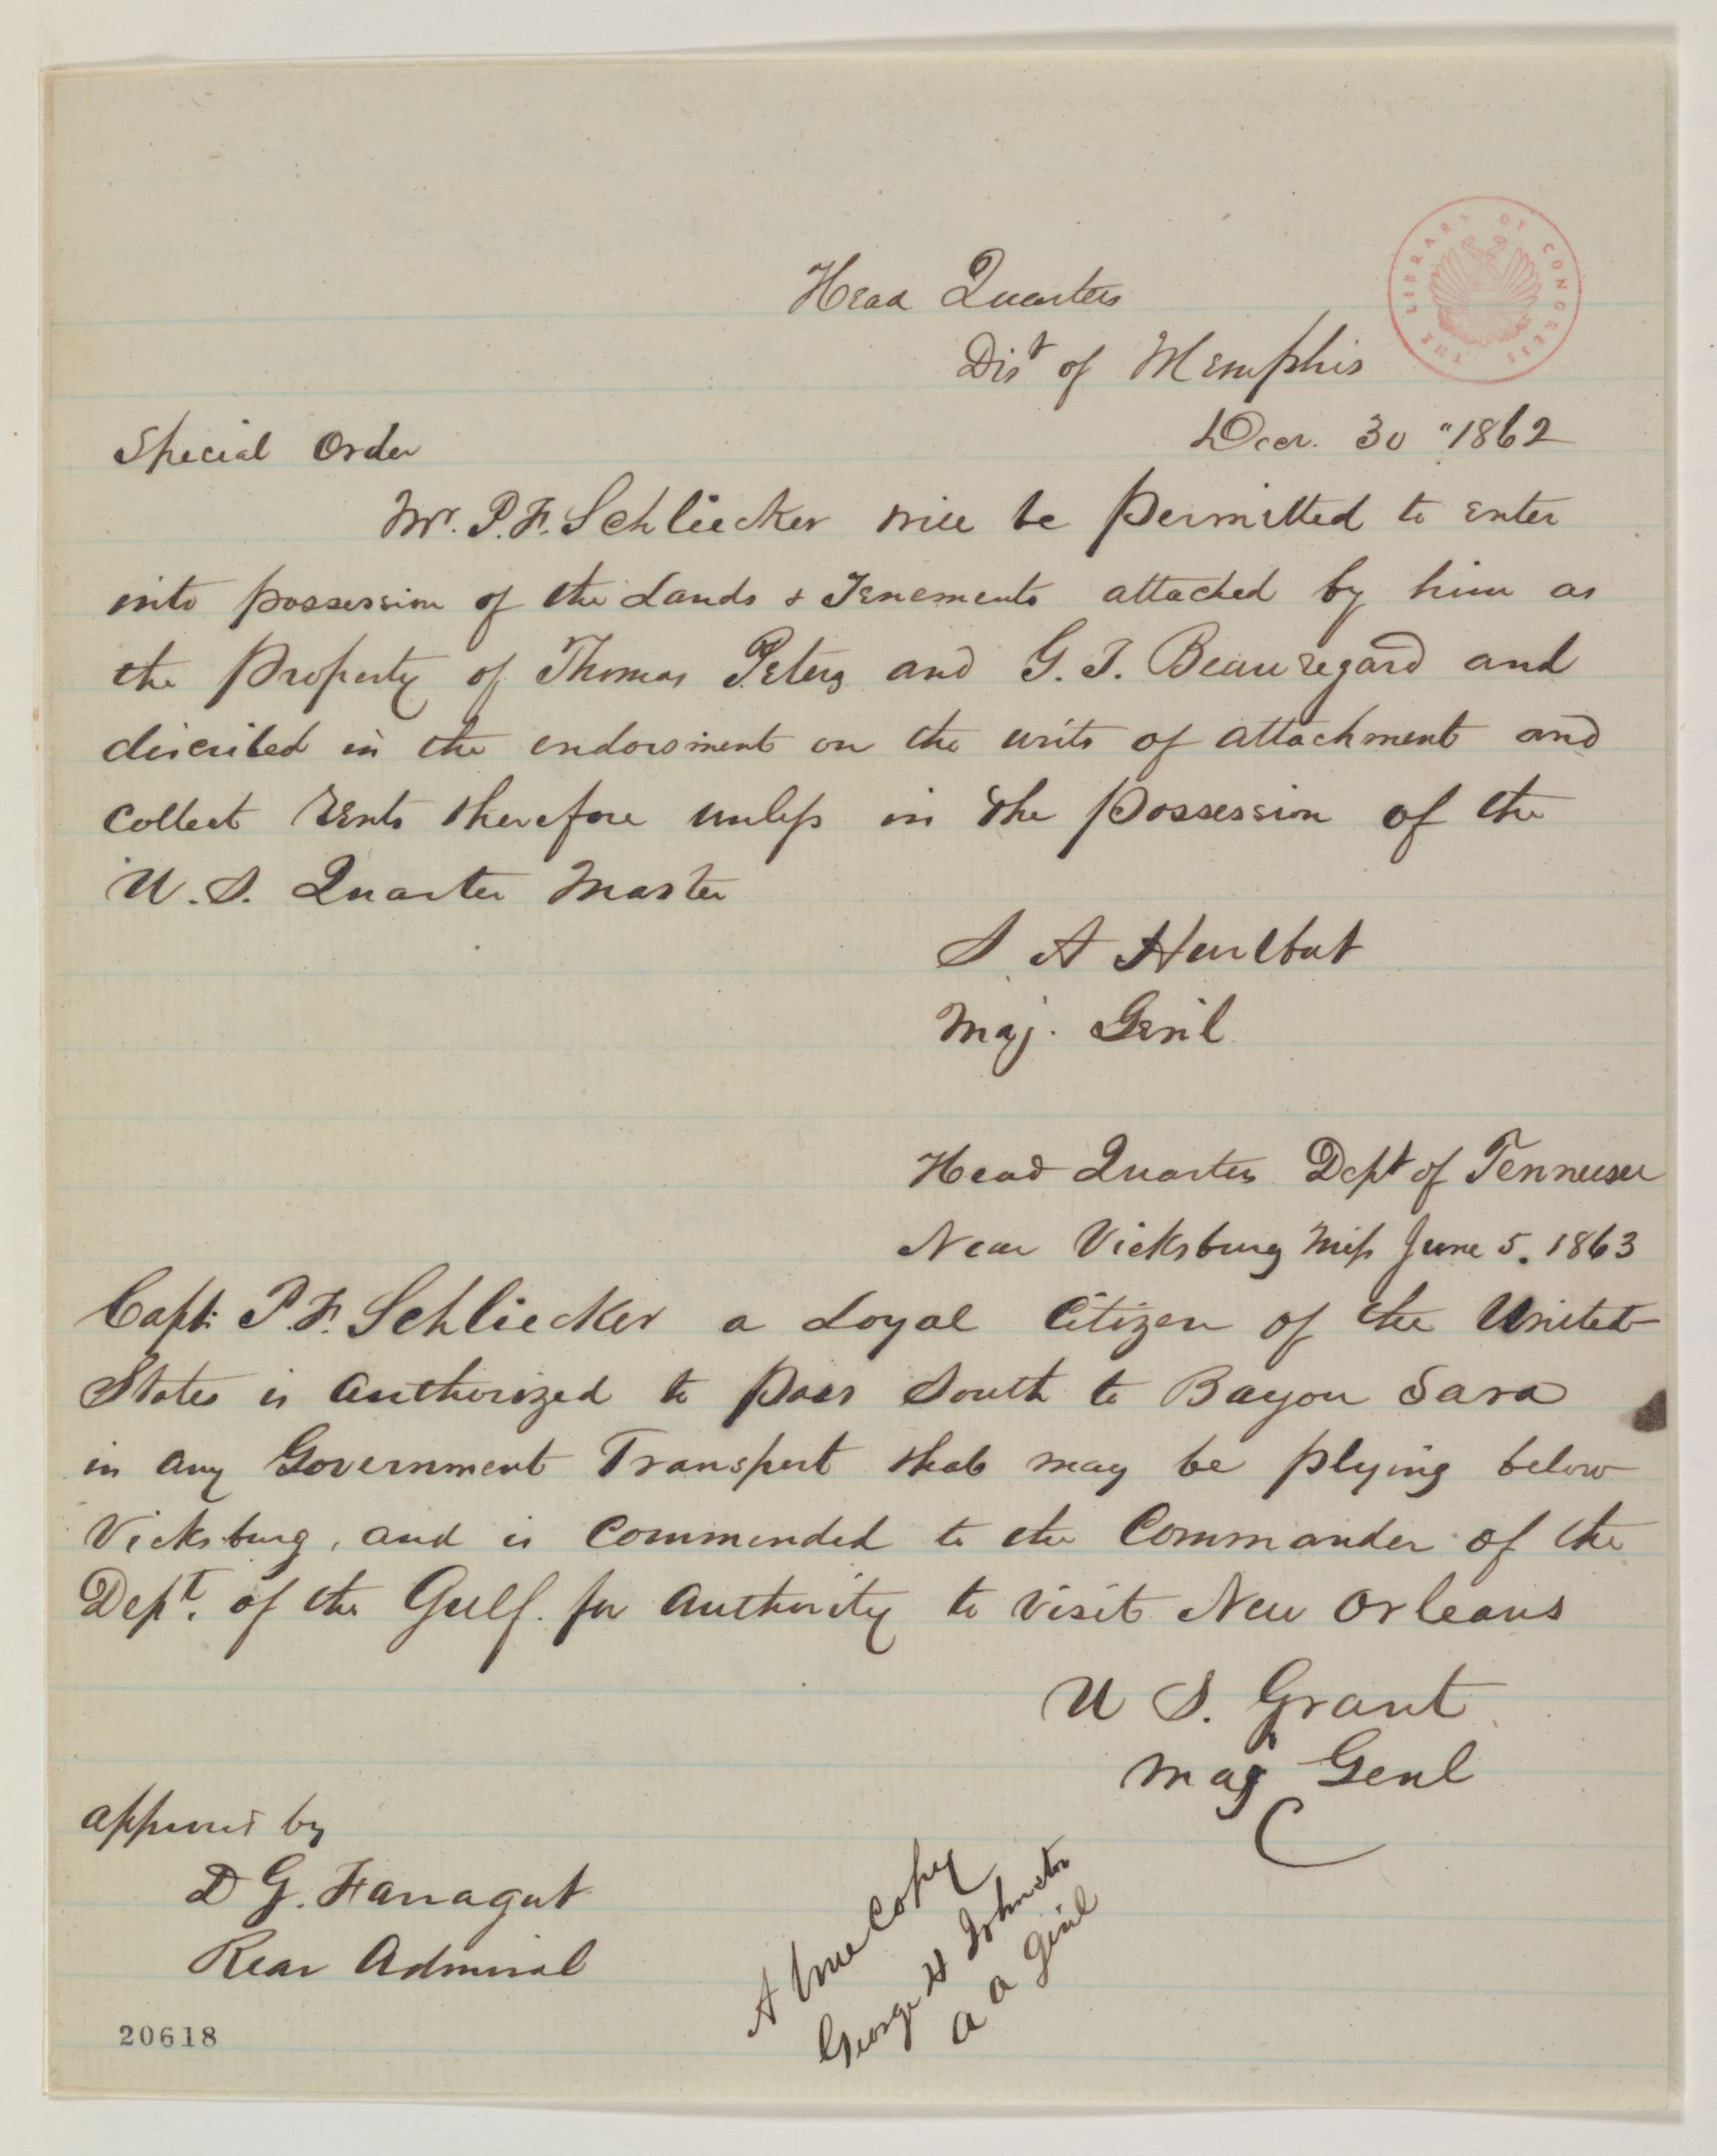 Head Quarters
Dist of Memphis
THE LIBRARY OF CONGRESS
Decr. 30 " 1862
Special Order
Mr. P. F. Schliecker will be permitted to enter
into possession of the Lands & Tenements attached by him as
the property of Thomas Peters and G. T. Beauregard and
discribed in the endorsment on the writs of attachment and
collect rents therefore unless in the possession of the
U. S. Quarter Master
S. A Hurlbut
Maj. Genl
Head Quarters Dept of Tennessee
Near Vicksburg Miss June 5. 1863
Capt. P. F. Schliecker a Loyal Citizen of the United
States is authorized to pass South to Bayou Sara
in any Government Transport that may be plying below
Vicksburg, and is commended to the Commander of the
Dept. of the Gulf. for authority to visit New Orleans
U S. Grant
Maj Genl
approved by
D G. Farragut
Rear Admiral
A true Copy
George H Johnston
A A Genl
20618